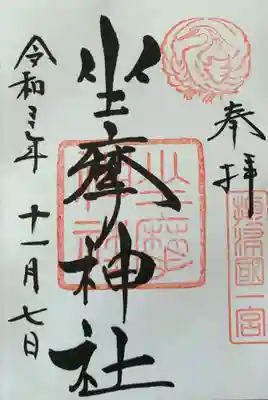 奉拝
摂津國一宮
坐摩神社
坐摩神社
令和三年 十一月七日